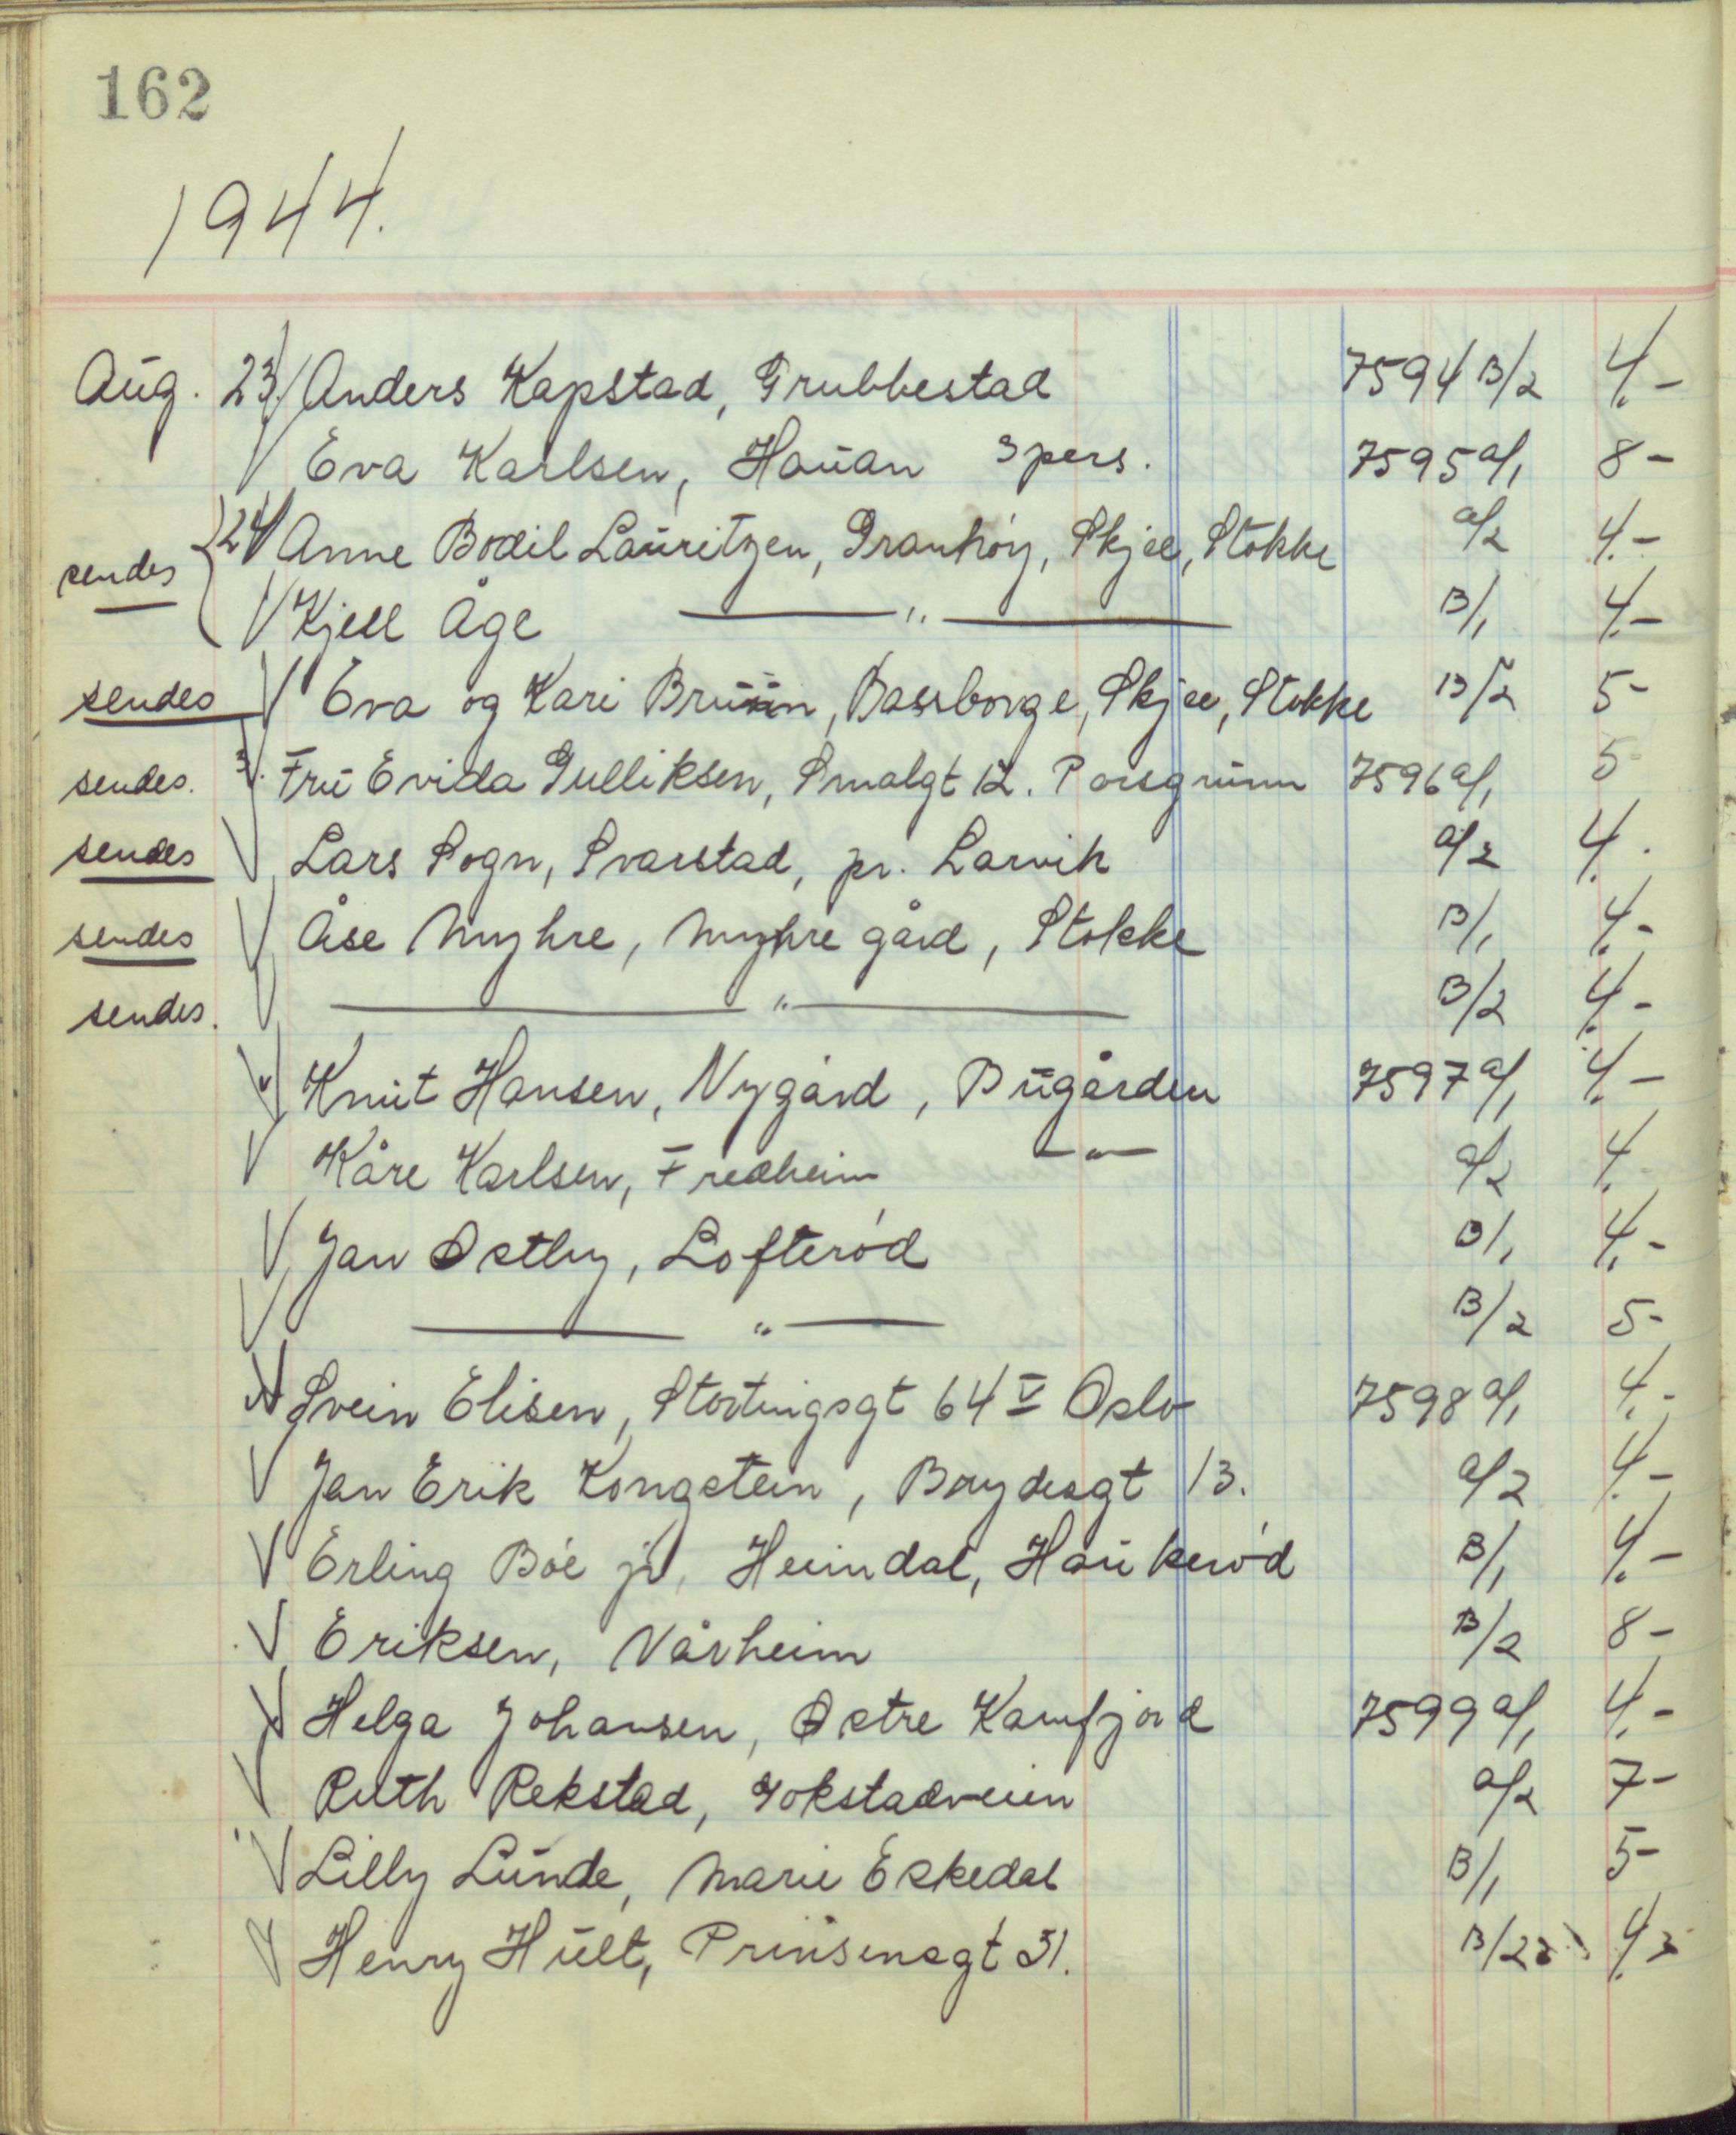 162
1944.
Aug. 23. Anders Kapstad, Grubbestad 7594 B/2 4.-
Eva Karlsen, Hauan 3 pers. 7595 a/1 8-
sendes 24 Anne Bodil Lauritzen, Granhøy, Skjee, Stokke a/2 4.-
Kjell Åge —„— B/1 4.-
sendes Eva og Kari Bruun, Bassborge, Skjee, Stokke B/2 5-
sendes. Fru Evida Gulliksen, Smalgt 12. Porsgrunn 7596 a/1 5-
sendes Lars Sogn, Svarstad, pr. Larvik a/2 4.
sendes Åse Myhre, Myhre gård, Stokke B/1 4.-
sendes. —„— B/2 4.-
Knut Hansen, Nygård, Bugården 7597 a/1 4.-
Kåre Karlsen, Fredheim —„— a/2 4.
Jan Østby, Lofterød B/1 4.-
—„— B/2 5-
Svein Elisen, Stortingsgt 64 V Oslo 7598 a/1 4.-
Jan Erik Kongstein, Brydesgt 13. a/2 4.-
Erling Bøe jr, Heimdal, Haukerød B/1 4.-
Eriksen, Vårheim B/2 8-
Helga Johansen, Østre Kamfjord 7599 a/1 4.-
Ruth Rekstad, Gokstadveien a/2 7-
Lilly Lunde, Marie Eskedal B/1 5-
Henry Hult, Prinsensgt 31. B/2 4.